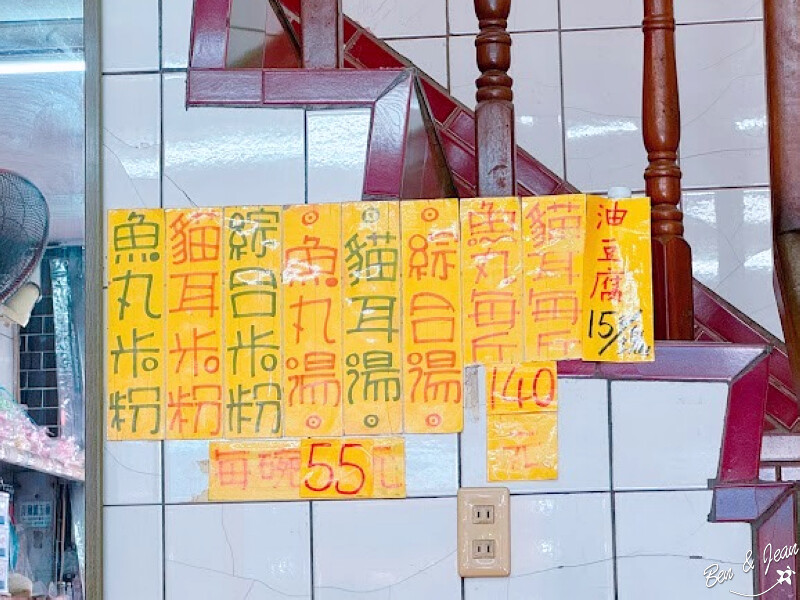 魚丸米粉
貓耳米粉
綜合米粉
魚丸湯
貓耳湯
綜合湯
每碗55元
魚丸每斤
貓耳每斤
140元
油豆腐
15/
Ben & Jean